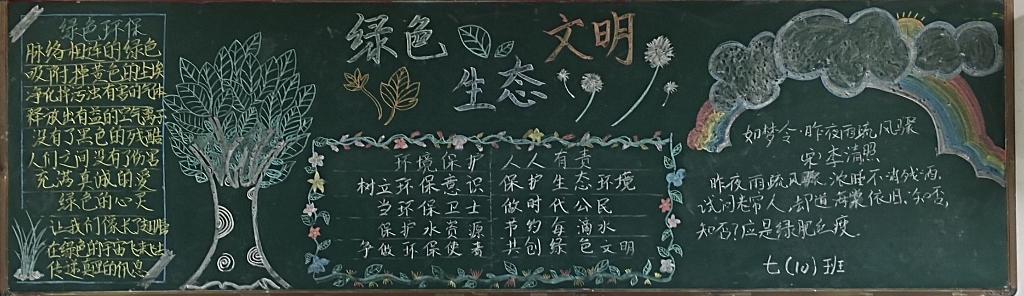 绿色 文明
生态
绿色环保
脉络相连的绿色
吸附掉黄色的尘埃
净化掉污浊有害的气体
释放出有益的空气离子
没有了黑色的残酷
人们之间没有伤害
充满真诚的爱
绿色的心灵
让我们像长了翅膀
在绿色的宇宙飞来飞去
传递真正的信息
环境保护 人人有责
树立环保意识 保护生态环境
当环保卫士 做时代公民
保护水资源 节约每滴水
争做环保使者 共创绿色文明
如梦令·昨夜雨疏风骤
宋 李清照
昨夜雨疏风骤,浓睡不消残酒,
试问卷帘人,却道海棠依旧,知否,
知否?应是绿肥红瘦。
七(10)班